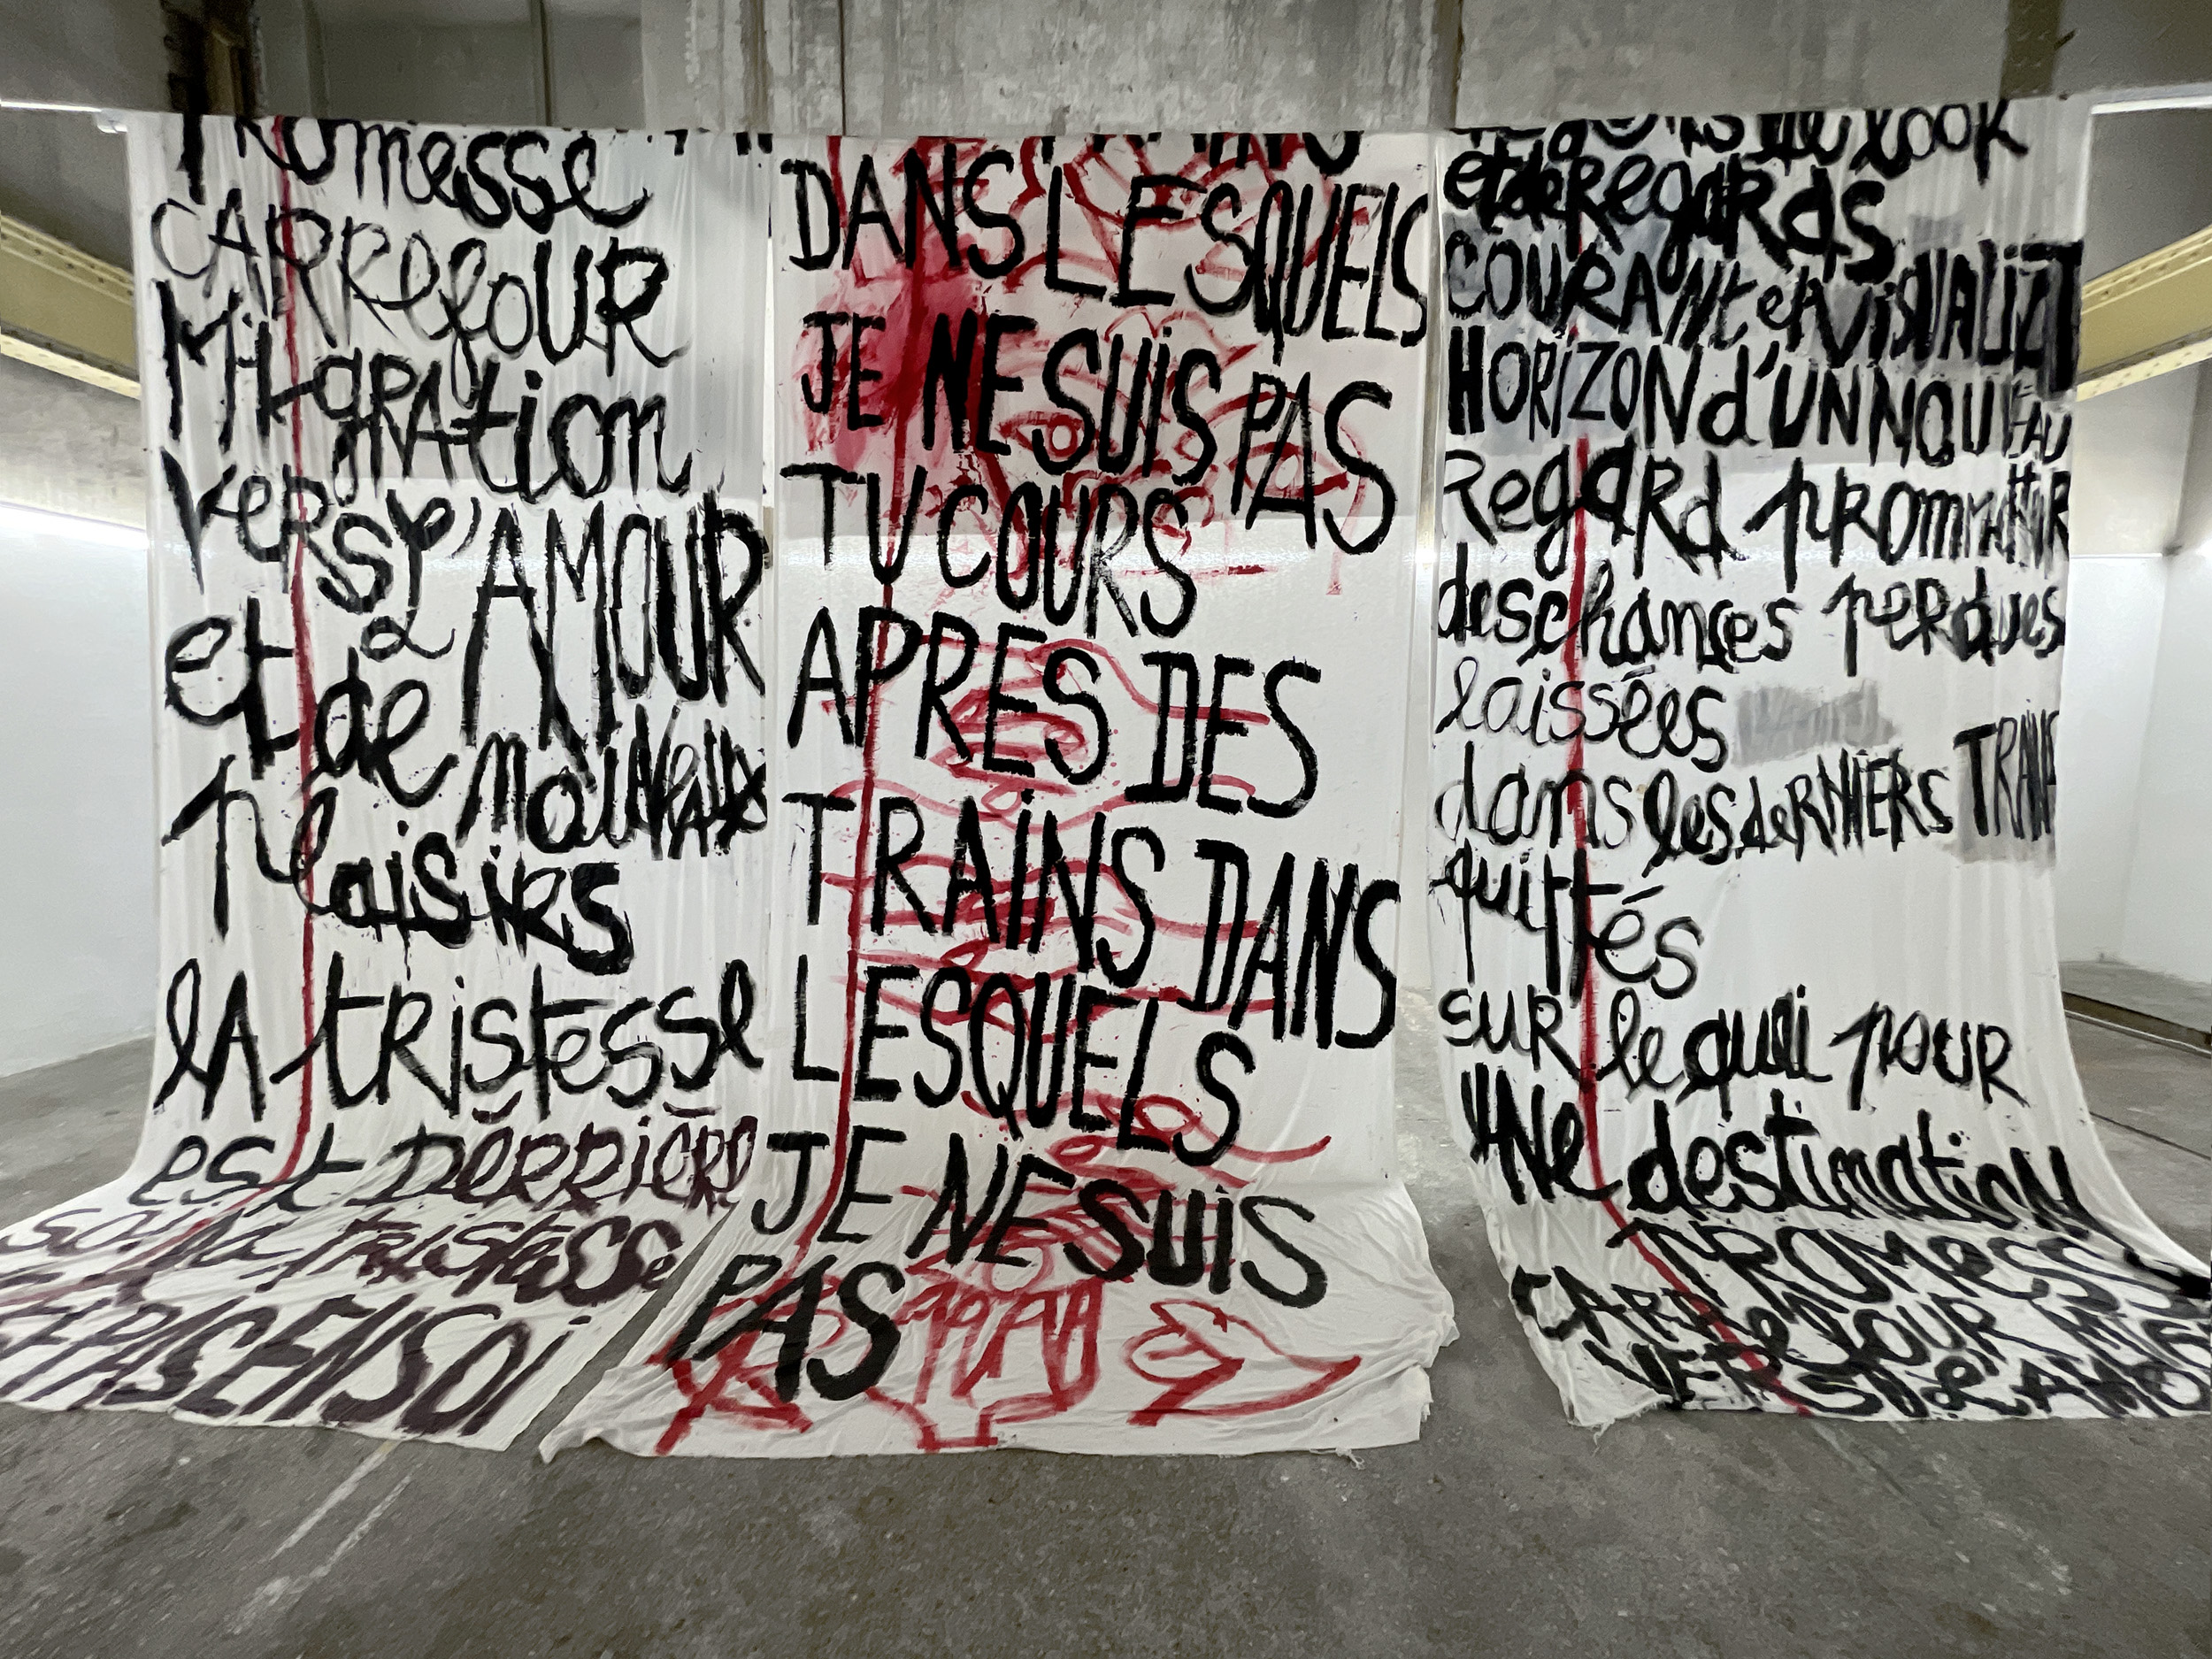 PROmesse
CARRefOUR
MiGRAtion
veRS l'AMOUR
et de mauvais
plaisirs
lA tRistesse
est DERRIÈRE
soi la tristesse
PAS EN SOI
DANS LESQUELS
JE NE SUiS PAS
TU COURS
APRES DES
TRAiNS DANS
LESQUELS
JE NE SUiS
PAS
look
et de RegaRds
COURANt et
HORIZON d'UN NOUVEAU
RegARd
des chances peRdues
laissées
dans les deRNiERs TRAiNS
quittés
suR le quai pouR
UNe destinatioN
PROMESSE
CARRefOUR
VERS L'AMO